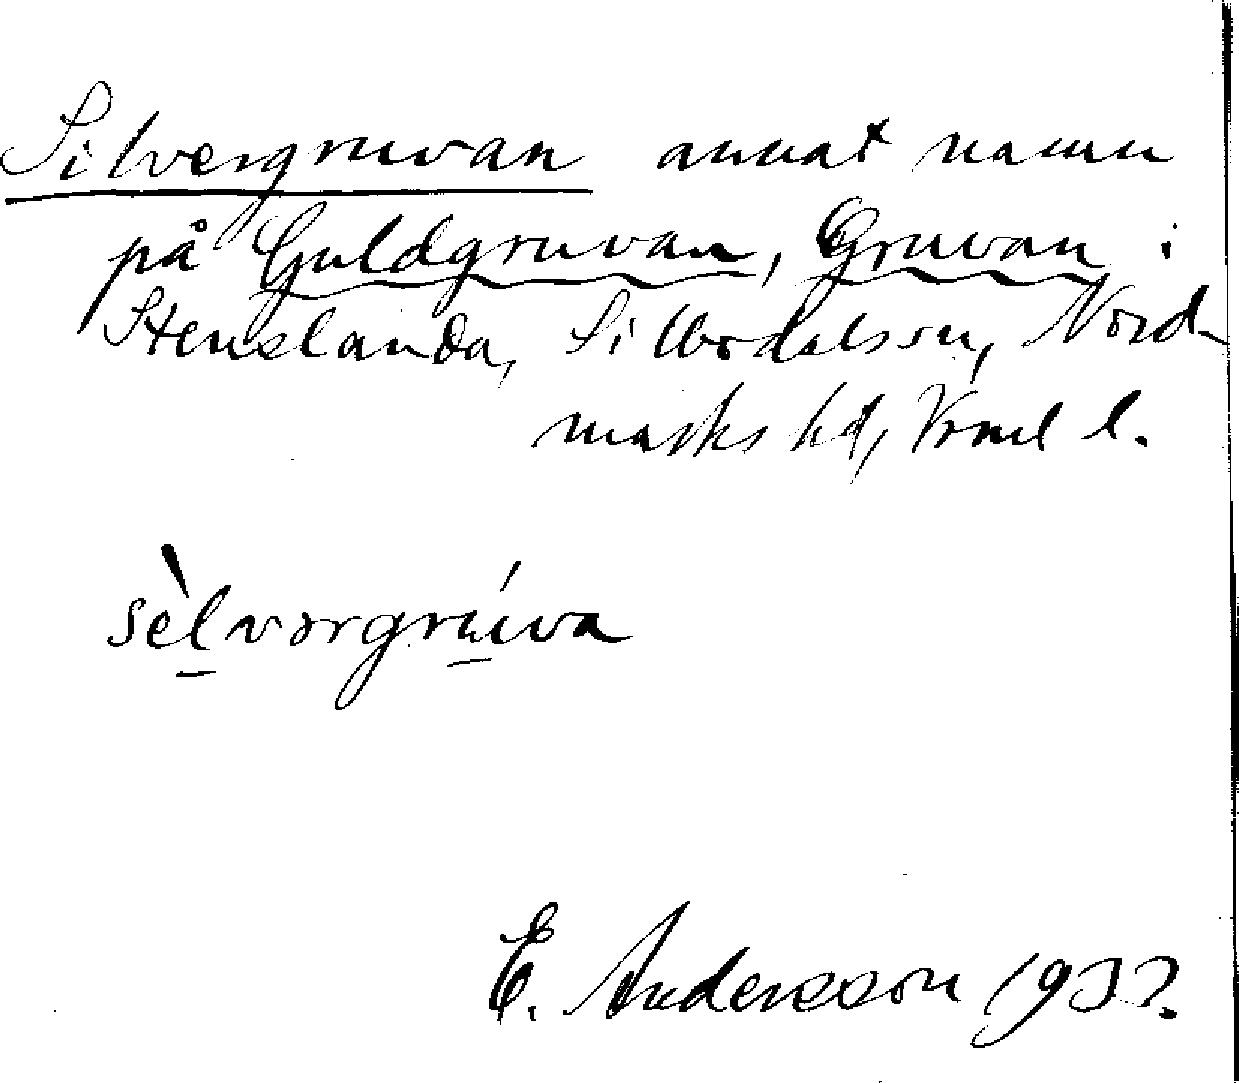 Silvergruvan annat namn
på Guldgruvan, Gruvan i
Stenslanda, Silbodals sn, Nord-
marks hd, Vrml l.
sèlvorgrúva
E. Andersson 1932.